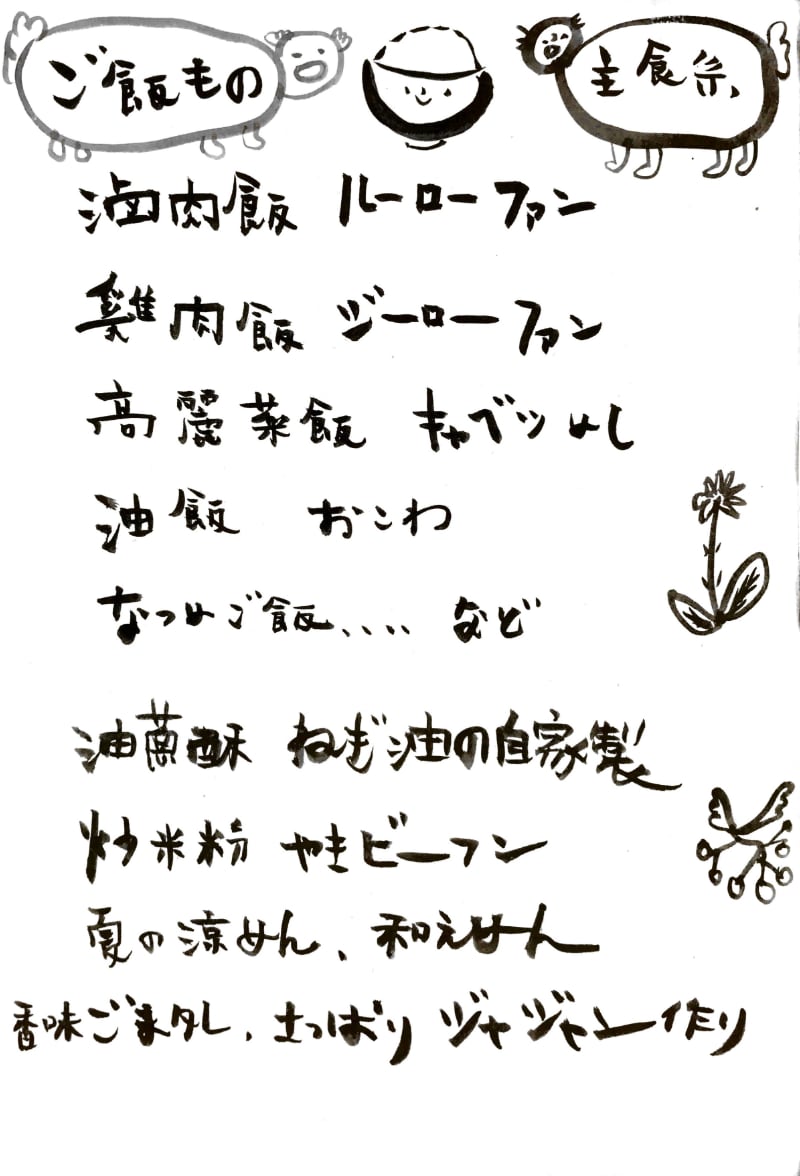 ご飯もの 主食系
滷肉飯 ルーローファン
雞肉飯 ジーローファン
高麗菜飯 キャベツめし
油飯 おこわ
なつめご飯、、、、 など
油蔥酥 ねぎ油の自家製
炒米粉 やきビーフン
夏の涼めん、和えめん
香味ごまダレ、さっぱり ジャジャン作り